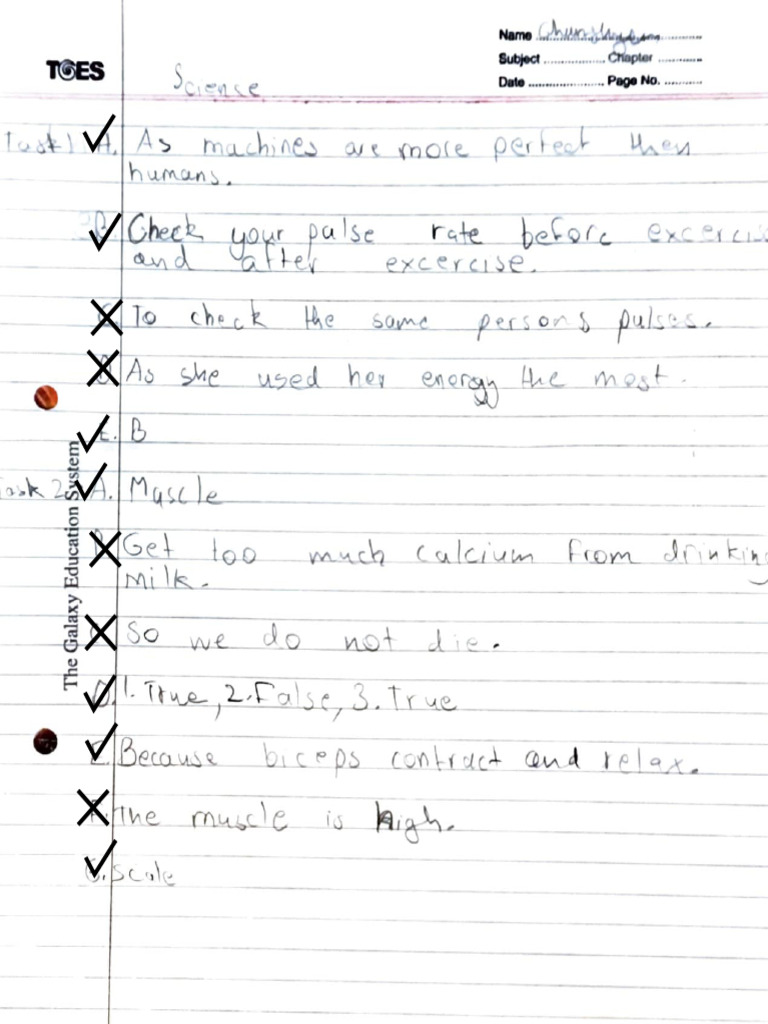 Name
Subject .................. Chapter .............
Date ..................... Page No. ...........
TGES
Science
Task 1 A. As machines are more perfect then
humans.
B. Check your pulse rate before excercise
and after excercise.
C. To check the same persons pulses.
D. As she used her energy the most.
E. B
Task 2 A. Muscle
B. Get too much calcium from drinking
milk.
C. So we do not die.
D. 1. True, 2. False, 3. True
E. Because biceps contract and relax.
F. The muscle is high.
G. Scale
The Galaxy Education System